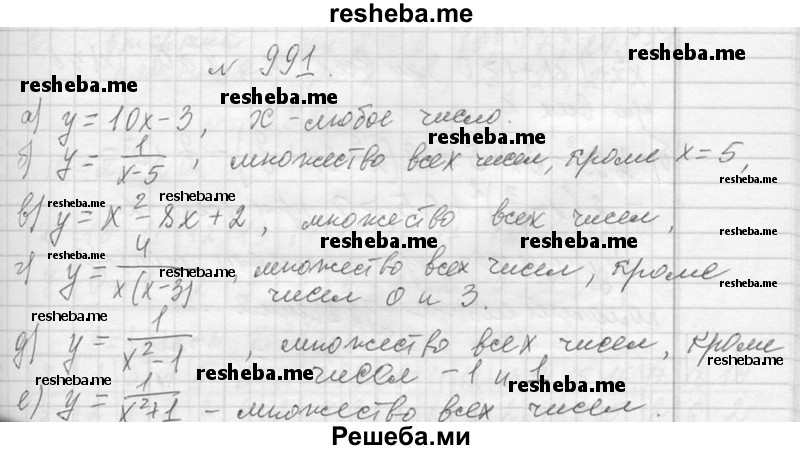 resheba.me
№ 991.
resheba.me
resheba.me
resheba.me
а) y = 10x - 3, x - любое число.
resheba.me
б) y = 1/(x-5), множество всех чисел, кроме x = 5,
resheba.me
resheba.me
resheba.me
в) y = x² - 8x + 2, множество всех чисел,
resheba.me
resheba.me
resheba.me
resheba.me
г) y = 4/(x(x-3)), множество всех чисел, кроме
чисел 0 и 3.
resheba.me
д) y = 1/(x²-1), множество всех чисел, кроме
resheba.me
чисел -1 и 1.
resheba.me
resheba.me
resheba.me
е) y = 1/(x²+1) - множество всех чисел.
Решеба.ми